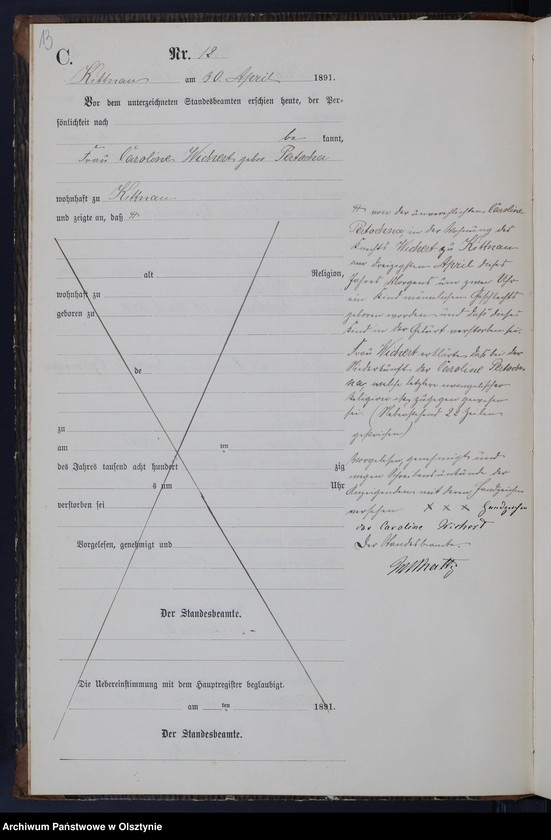 13
C.
Nr. 12.
Kittnau am 30. April 1891.
Vor dem unterzeichneten Standesbeamten erschien heute, der Per-
sönlichkeit nach
be kannt,
Frau Caroline Wichert gebor
wohnhaft zu Kittnau
und zeigte an, daß
alt Religion,
wohnhaft zu
geboren zu
de
zu
am ten
des Jahres tausend acht hundert zig
s um Uhr
verstorben sei
Vorgelesen, genehmigt und
Der Standesbeamte.
Die Uebereinstimmung mit dem Hauptregister beglaubigt.
am ten 1891.
Der Standesbeamte.
von der unverehelichten Caroline
in der Wohnung des
Knechts Wichert zu Kittnau
am dreizigsten April dieses
Jahres Morgens um zwei Uhr
ein Kind männlichen Geschlechts
geboren worden und daß dieses
Kind in der Geburt verstorben sei.
Frau Wichert erklärte, daß bei der
Niederkunft der Caroline
welche letztere evangelischer
Religion zugegen gewesen
sei. (Nebenstehend 22 Zeilen
gestrichen)
Vorgelesen, genehmigt und
wegen Schreibensunkunde der
Anzeigenden mit deren Handzeichen
versehen x x x Handzeichen
der Caroline Wichert
Der Standesbeamte.
Archiwum Państwowe w Olsztynie